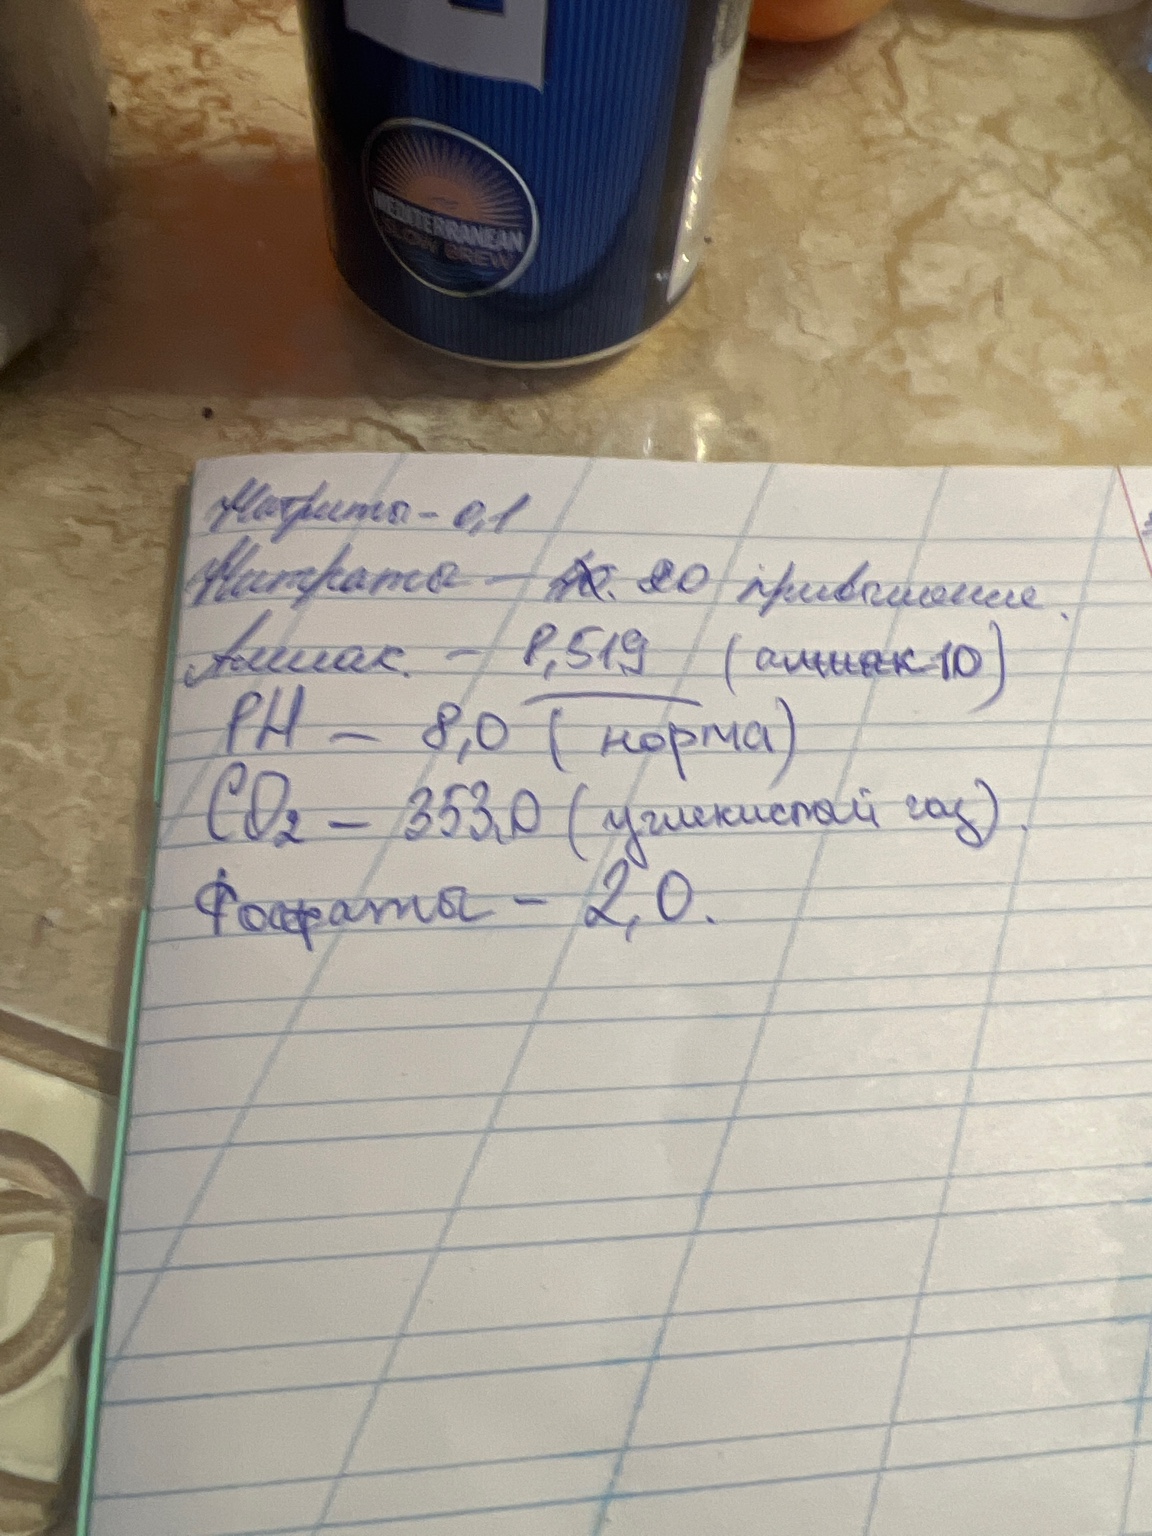 MEDITERRANEAN
SLOW BREW
Нитриты - 0,1
Нитраты - 20 привышение.
Амиак. - 8,519 (амиак 10)
PH - 8,0 (норма)
CO2 - 353,0 (углекистой газ).
Фосфаты - 2,0.